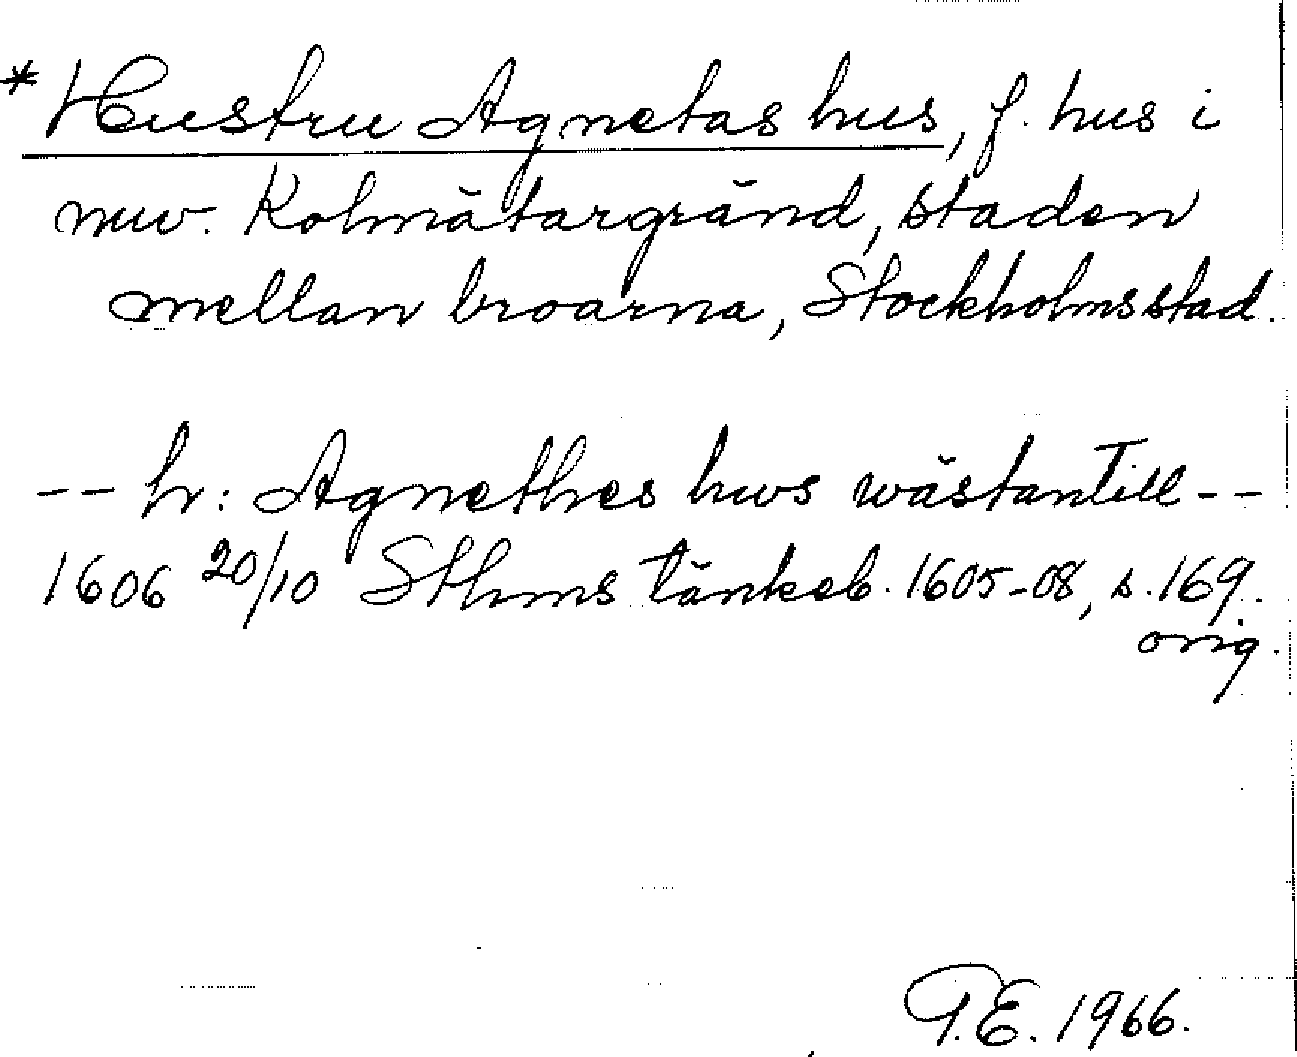 * Hustru Agnetas hus, f. hus i
nuv. Kolmätargränd, staden
mellan broarna, Stockholms stad.
-- h: Agnethes hws wästantill --
1606 20/10 Sthms tänkeb. 1605-08, s. 169.
orig.
P.E. 1966.